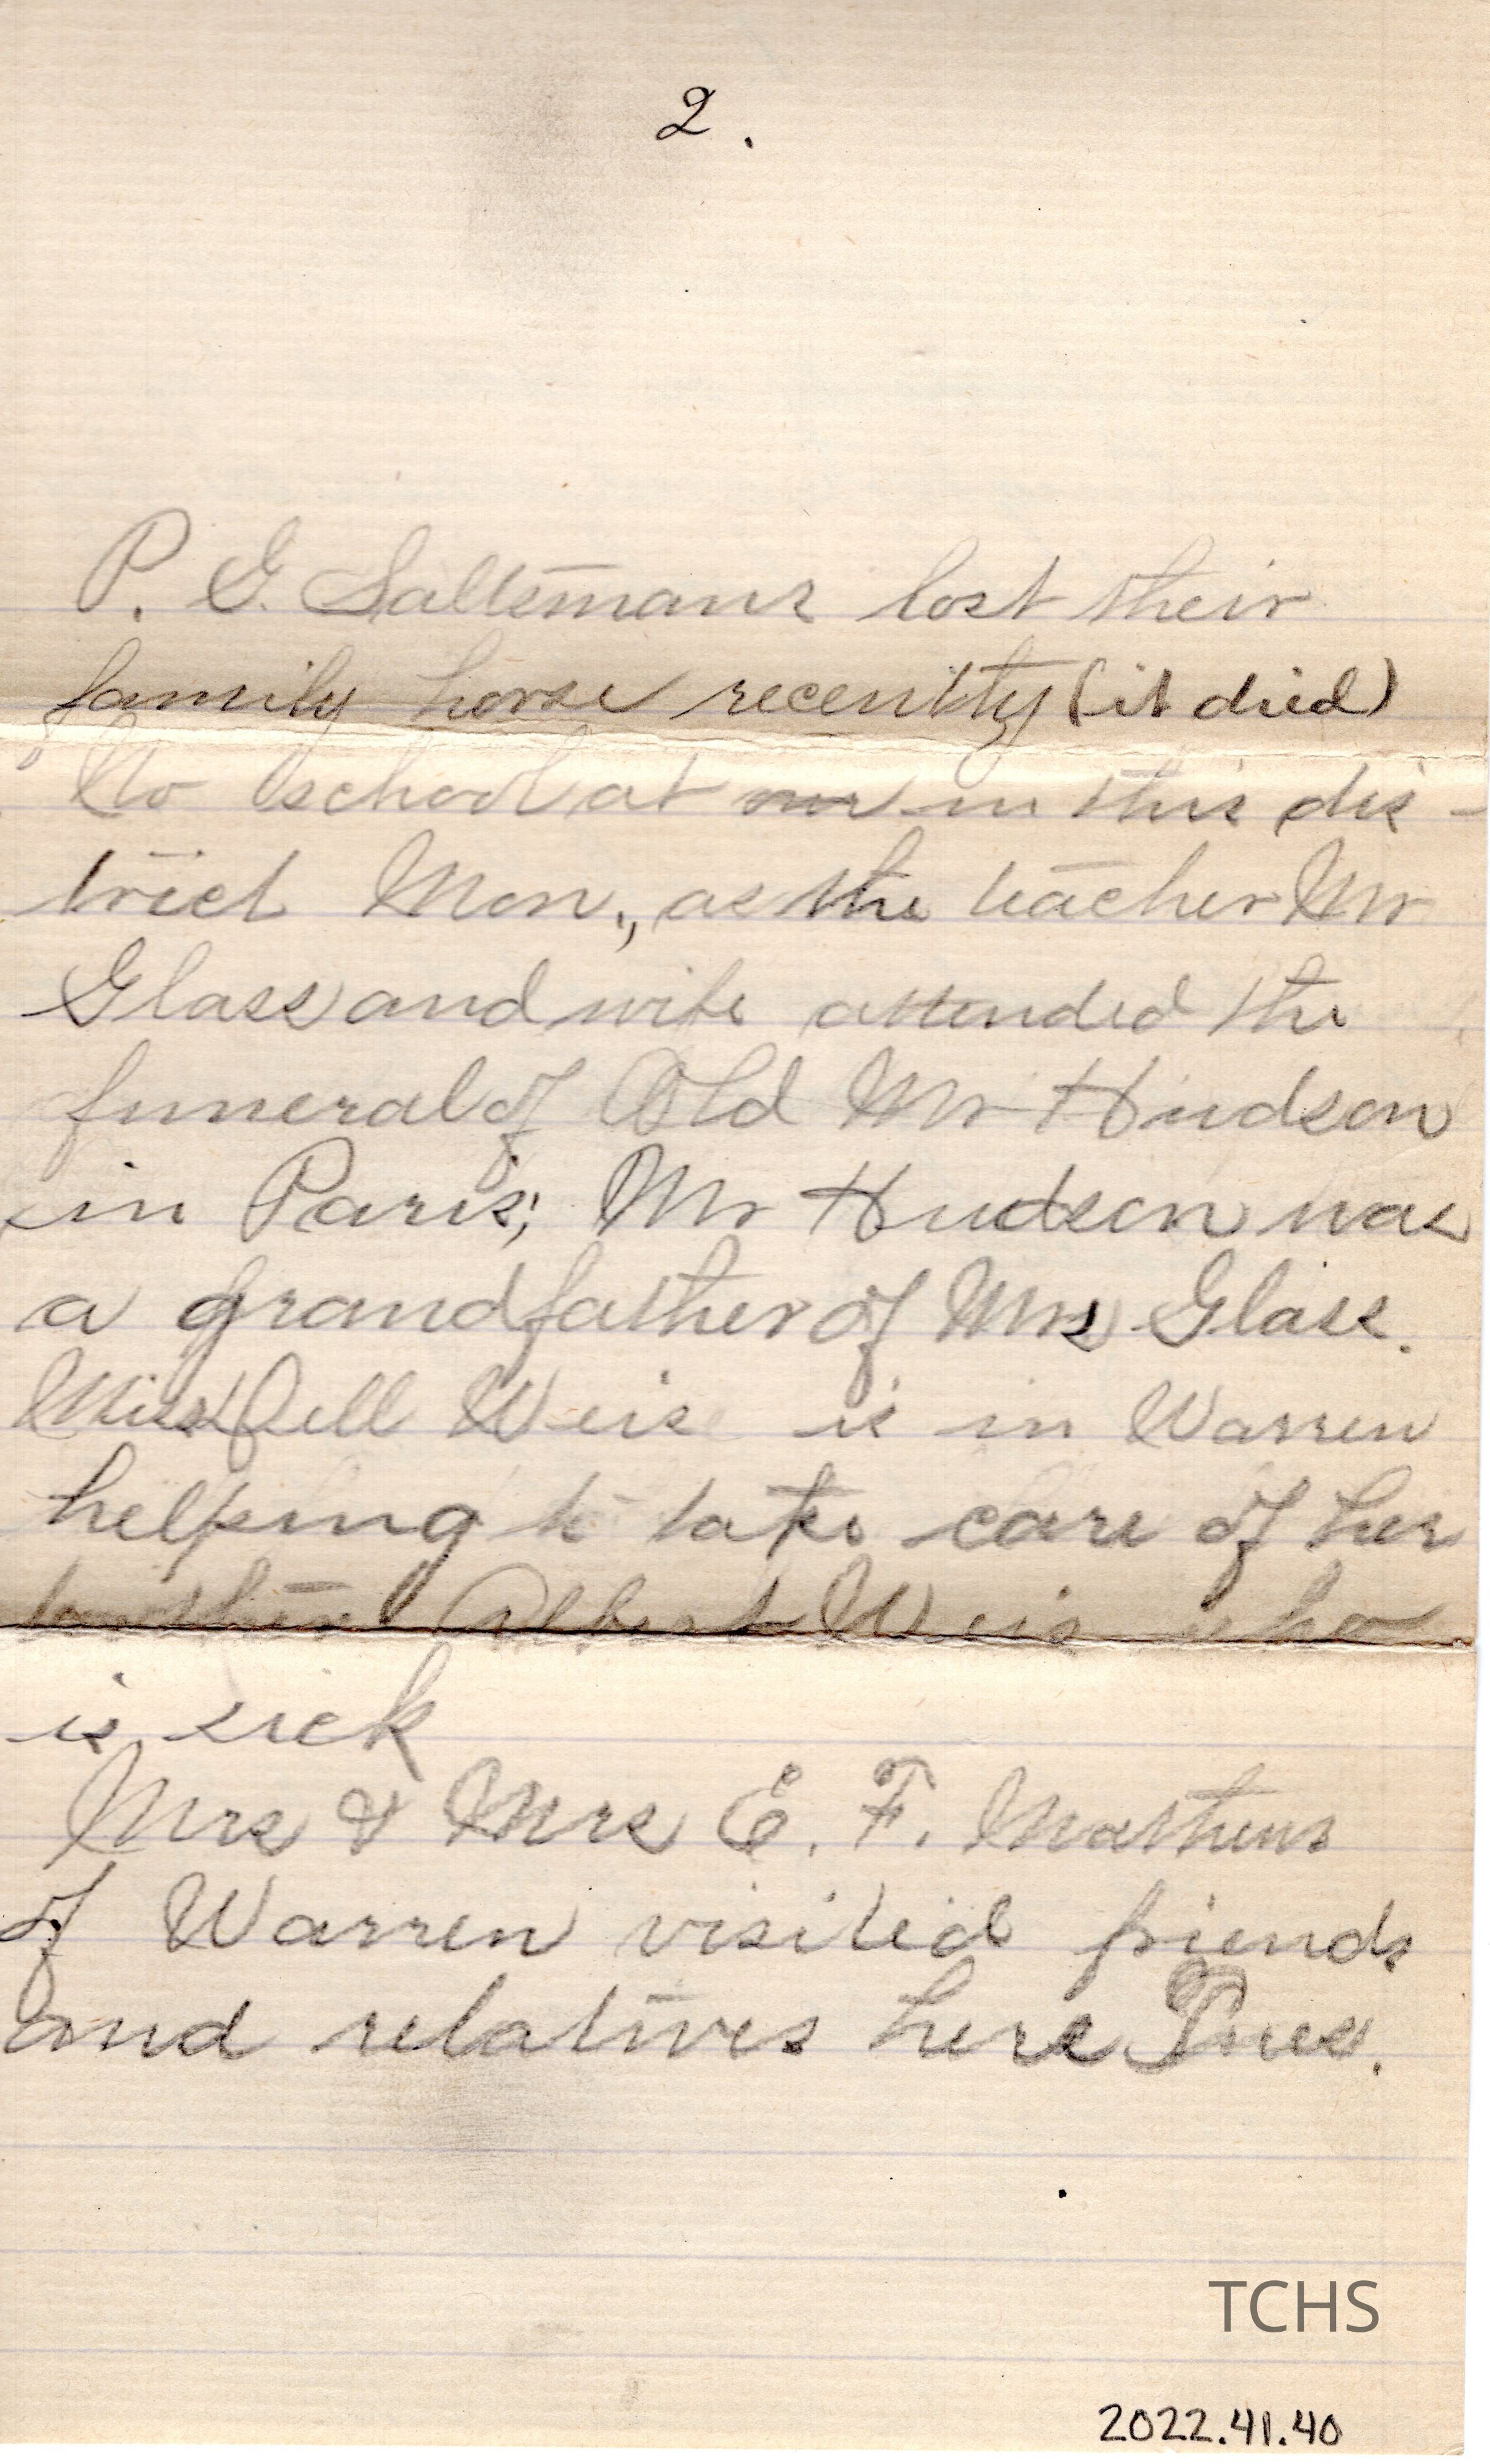 2.
P. G. Saltsmans lost their
family horse recently (it died)
No school at in this dis-
trict Mon., as the teacher Mr
Glass and wife attended the
funeral of Old Mr Hudson
in Paris; Mr Hudson was
a grandfather of Mrs Glass.
Miss Dell Weis is in Warren
helping to take care of her
brother Albert Weis who
is sick
Mrs & Mrs E. F. Mathews
of Warren visited friends
and relatives here Tues.
TCHS
2022.41.40